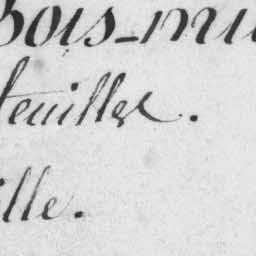 Bois-mu
feuilles.
ille.